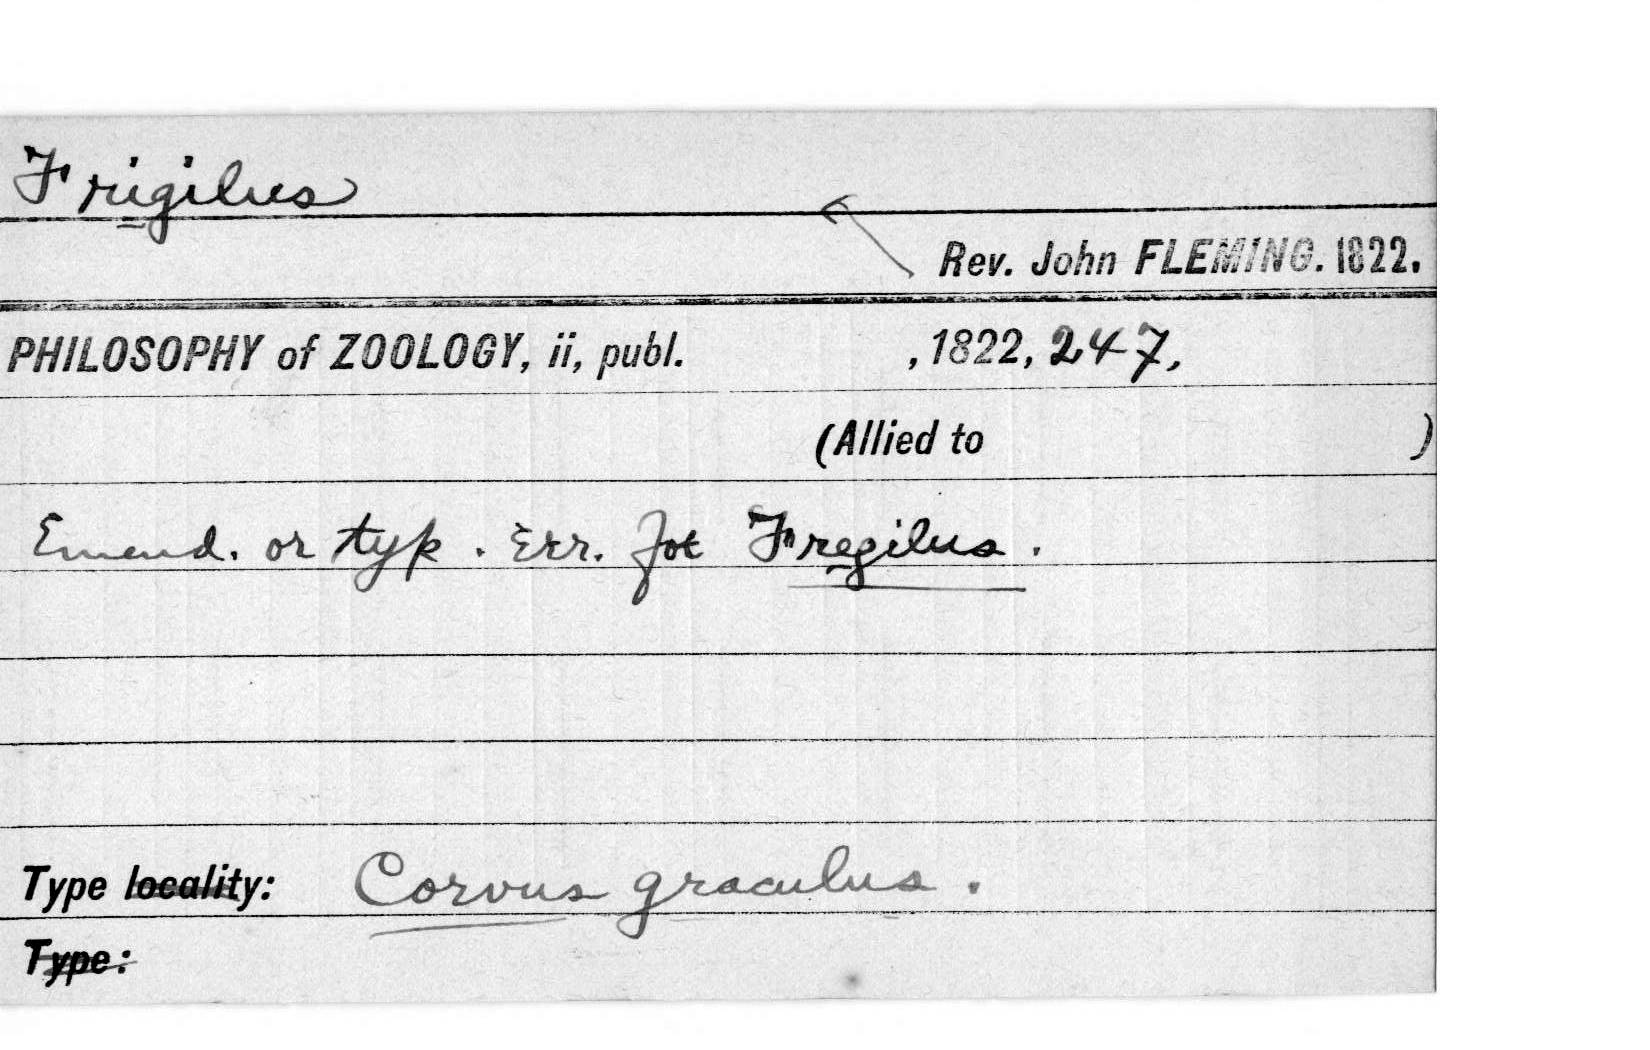 Frigilus
Rev. John FLEMING. 1822.
PHILOSOPHY of ZOOLOGY, ii, publ. , 1822, 247,
(Allied to )
Emend. or typ. Err. for Fregilus.
Type locality: Corvus graculus.
Type: